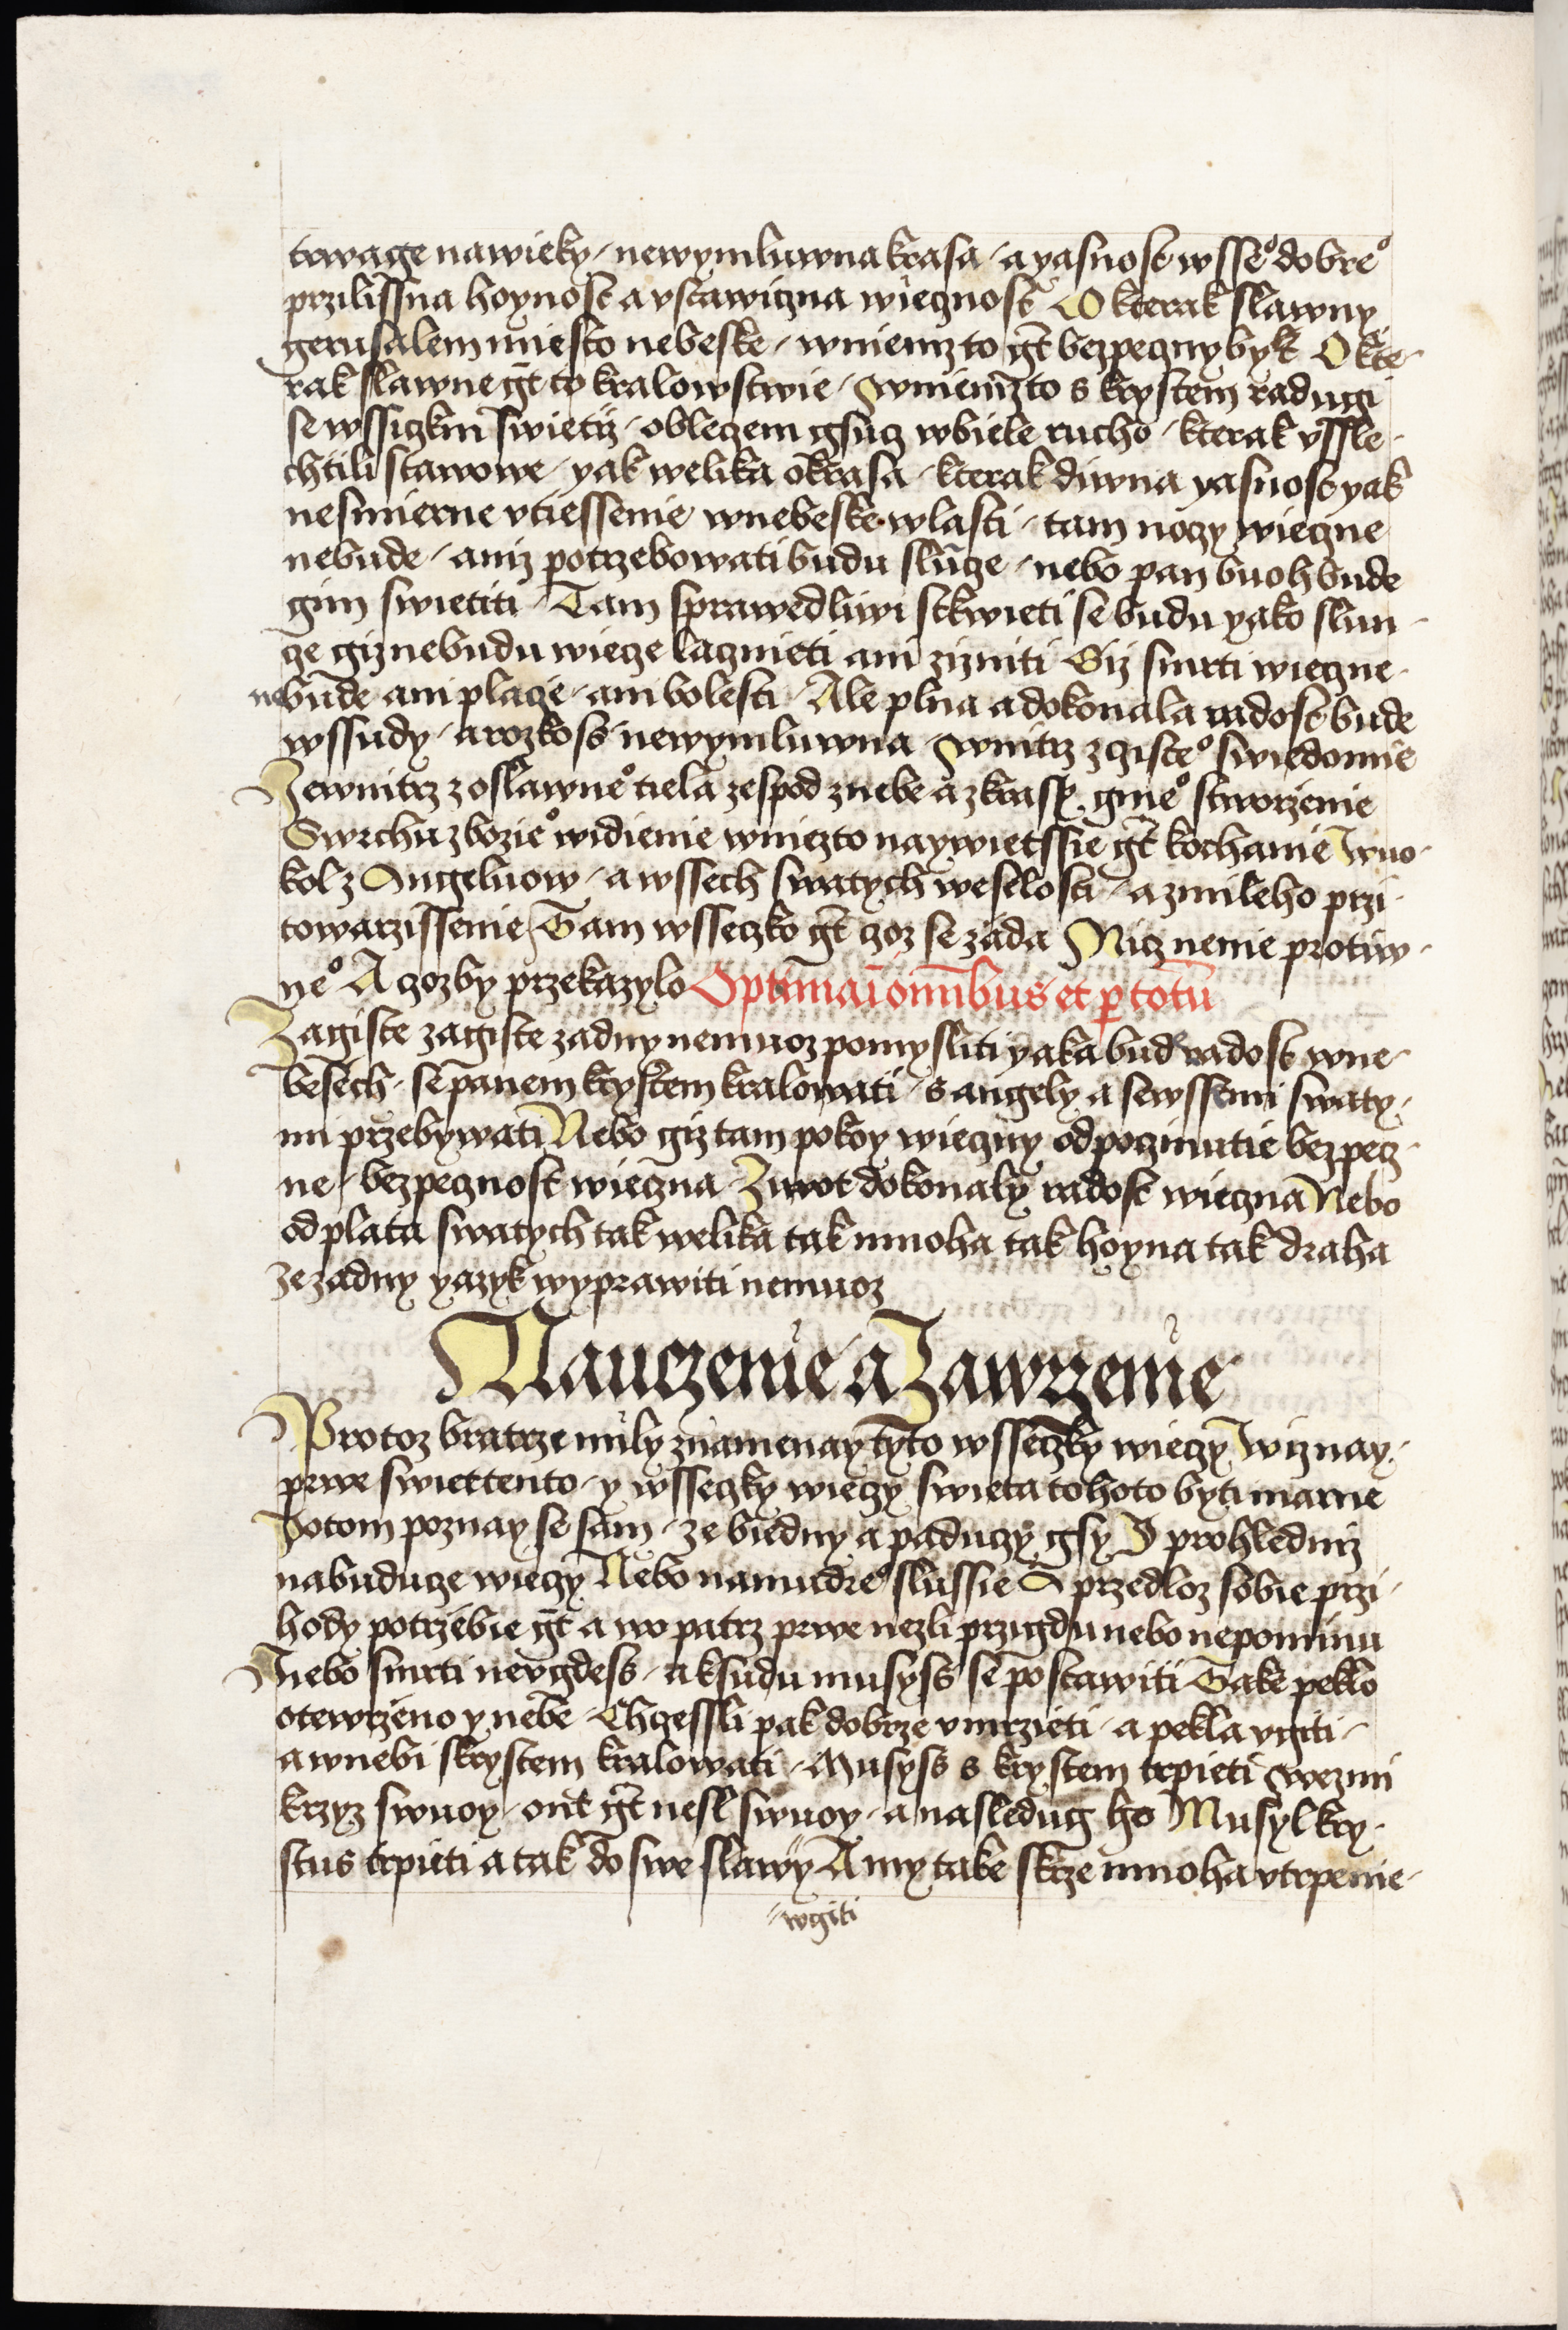 trwage nawieky / newymluwna krasa / a yasnost wsse° dobre°
przilissna hoynost a vstawiczna wiecznost O kterak slawny
gerusalem miesto nebeske / w niemzto gt bezpeczny byt O kte-
rak slawne gt to kralowstwie / w niemzto s krystem radugi
se wssiczkni swietij / obleczem gsucz w biele rucho / kterak vssle-
chtili stawowe / yak welika okrasa / kterak diwna yasnost yak
nesmierne vtiessenie w nebeske wlasti / tam noczy wieczne
nebude / aniz potrzebowati budu slunze / nebo pan buoh bude
gim swietiti / Tam sprawedliwi stkwieti se budu yako slun-
ze giz nebudu wieze lacznieti ani zizniti Giz smrti wieczne
nebude ani placze / ani bolesti / Ale plna a dokonala radost bude
wssudy / a rozkoss newymluwna / wnitrz z czisteo swiedomie
Zewnitrz z oslawne° tiela zespod z nebe a z krasy gine° stworzenie
Swrchu z bozie° widienie w niezto naywietssie gt kochanie Wuo-
kol z Angeluow / a wssech swatych weselosti / a z mileho przi-
towarzissenie / Tam wsseczko gt czoz se zada Nicz nenie protiw-
ne° A czozby przekazylo Optima in omnibus et p totu
Zagiste zagiste zadny nemuoz pomysliti yaka bude radost w ne-
besech / se panem krystem kralowati / s angely a se wssemi swaty-
mi przebywati Nebo giz tam pokoy wieczny odpoczinutie bezpecz-
ne / bezpecznost wieczna / Ziwot dokonaly radost wieczna Nebo
odplata swatych tak welika tak mnoha tak hoyna tak draha
ze zadny yazyk wyprawiti nemuoz
Nauczenie a Zawrzenie
Protoz bratrze mily znamenay tyto wsseczky wieczy I wiznay
prwe swiet tento / y wsseczky wieczy swieta tohoto byti marne
Potom poznay se sam / ze biedny a paduczy gsy I prohledniz
na buducze wieczy Nebo na mudre° slussie A przedloz sobie przi-
hody potrzebie gt a wopatrz prwe nezli przigdu nebo nepominu
Nebo smrti nevgdess / a k sudu musyss se postawiti Take peklo
otewrzeno y nebe / Chczessli pak dobrze vmrzieti / a pekla vgiti /
a w nebi s krystem kralowati / Musyss s krystem trpieti wezmi
krzyz swuoy / ont gt nesl swuoy / a nasledug ho Musyl kry-
stus trpieti a tak do swe slawy A my take skrze mnoha vtrpenie
wgiti